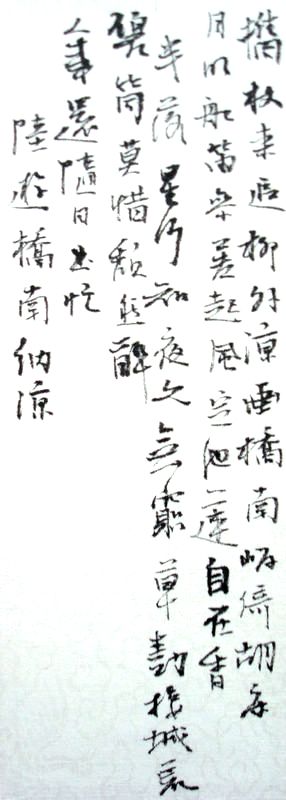 攜杖来追柳外涼畫橋南畔倚胡床
月明船笛參差起風定池蓮自在香
半落星河知夜久無窮草樹接城
碧筒莫惜頹然醉
人事還隨日出忙
陸遊橋南納涼